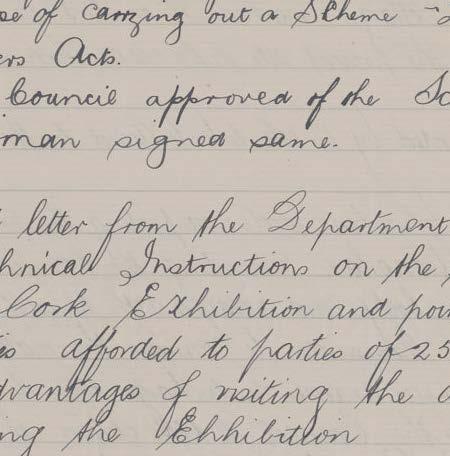 se of carrying out a Scheme
ers Acts.
Council approved of the Sc
man signed same.
letter from the Department
hnical Instructions on the
Cork Exhibition and poin
es afforded to parties of 25
dvantages of visiting the
ng the Ehhibition